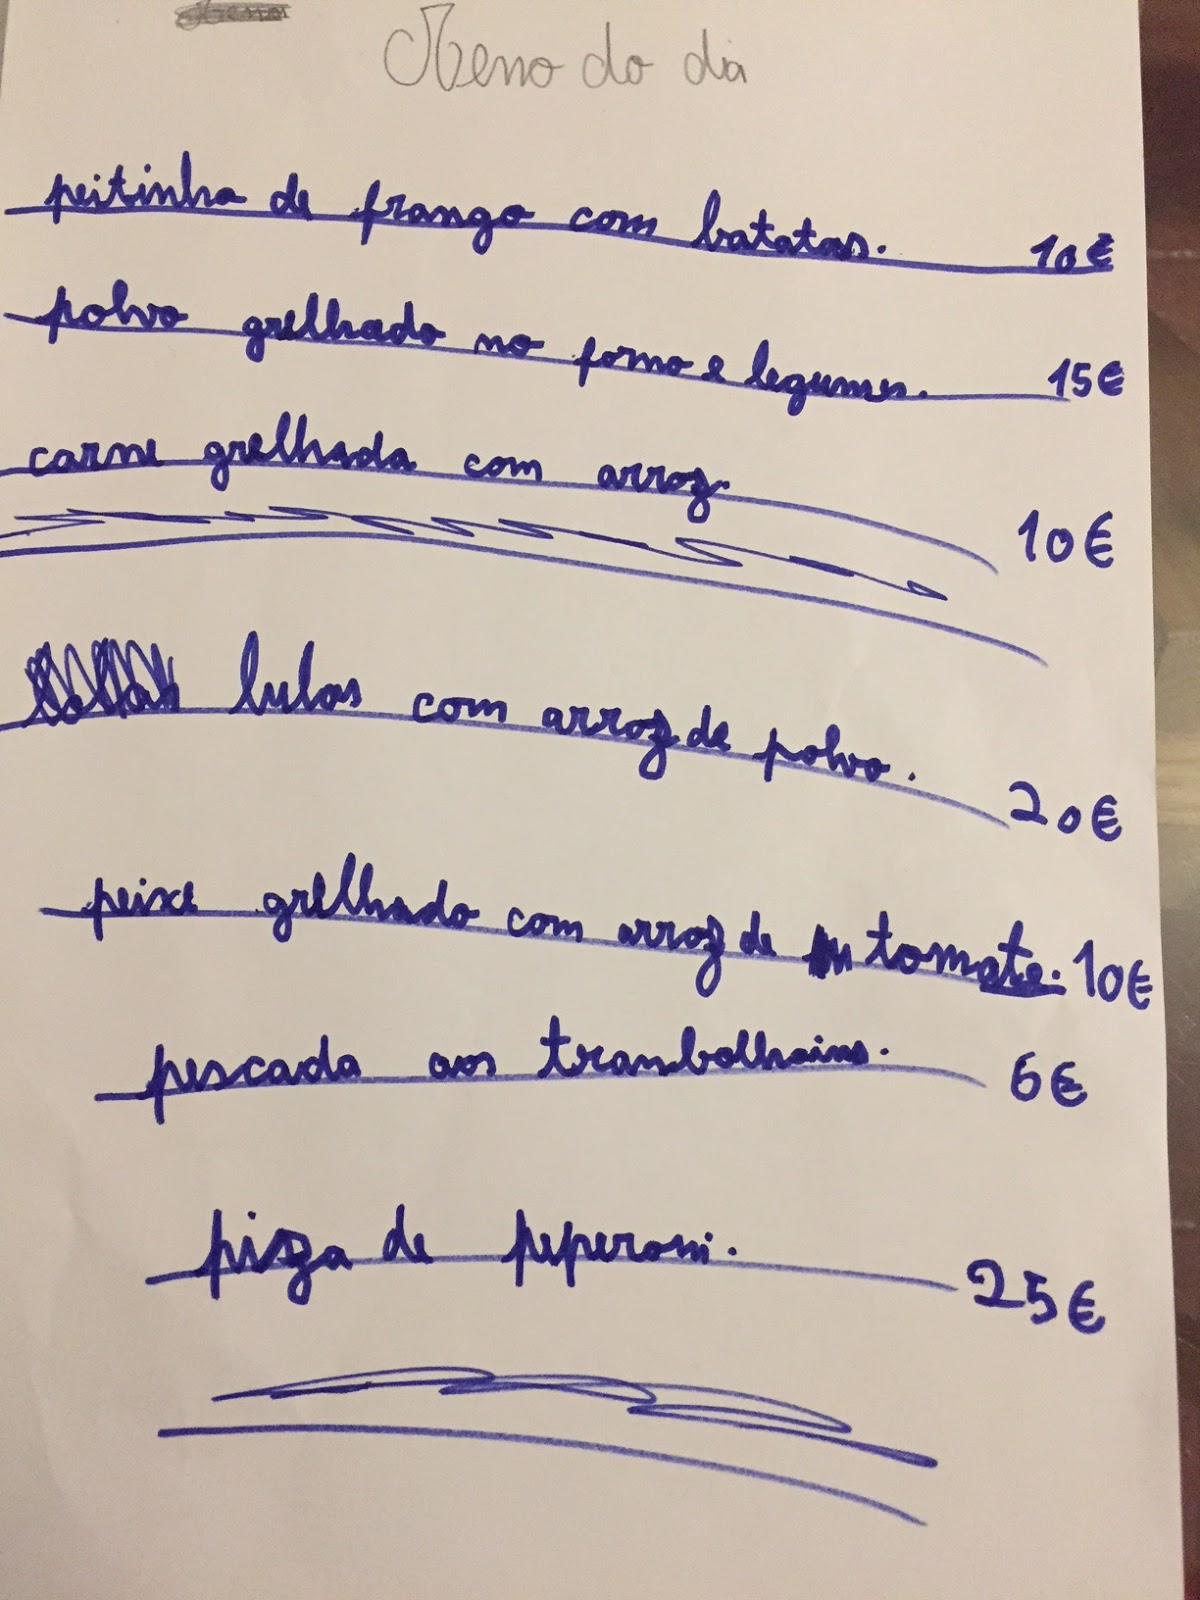 Meno do dia
peitinho de frango com batatas. 10€
polvo grelhado no forno e legumes. 15€
carne grelhada com arroz. 10€
lulas com arroz de polvo. 20€
peixe grelhado com arroz de tomate. 10€
pescada aos tranbolhoins. 6€
pizza de peperoni. 25€